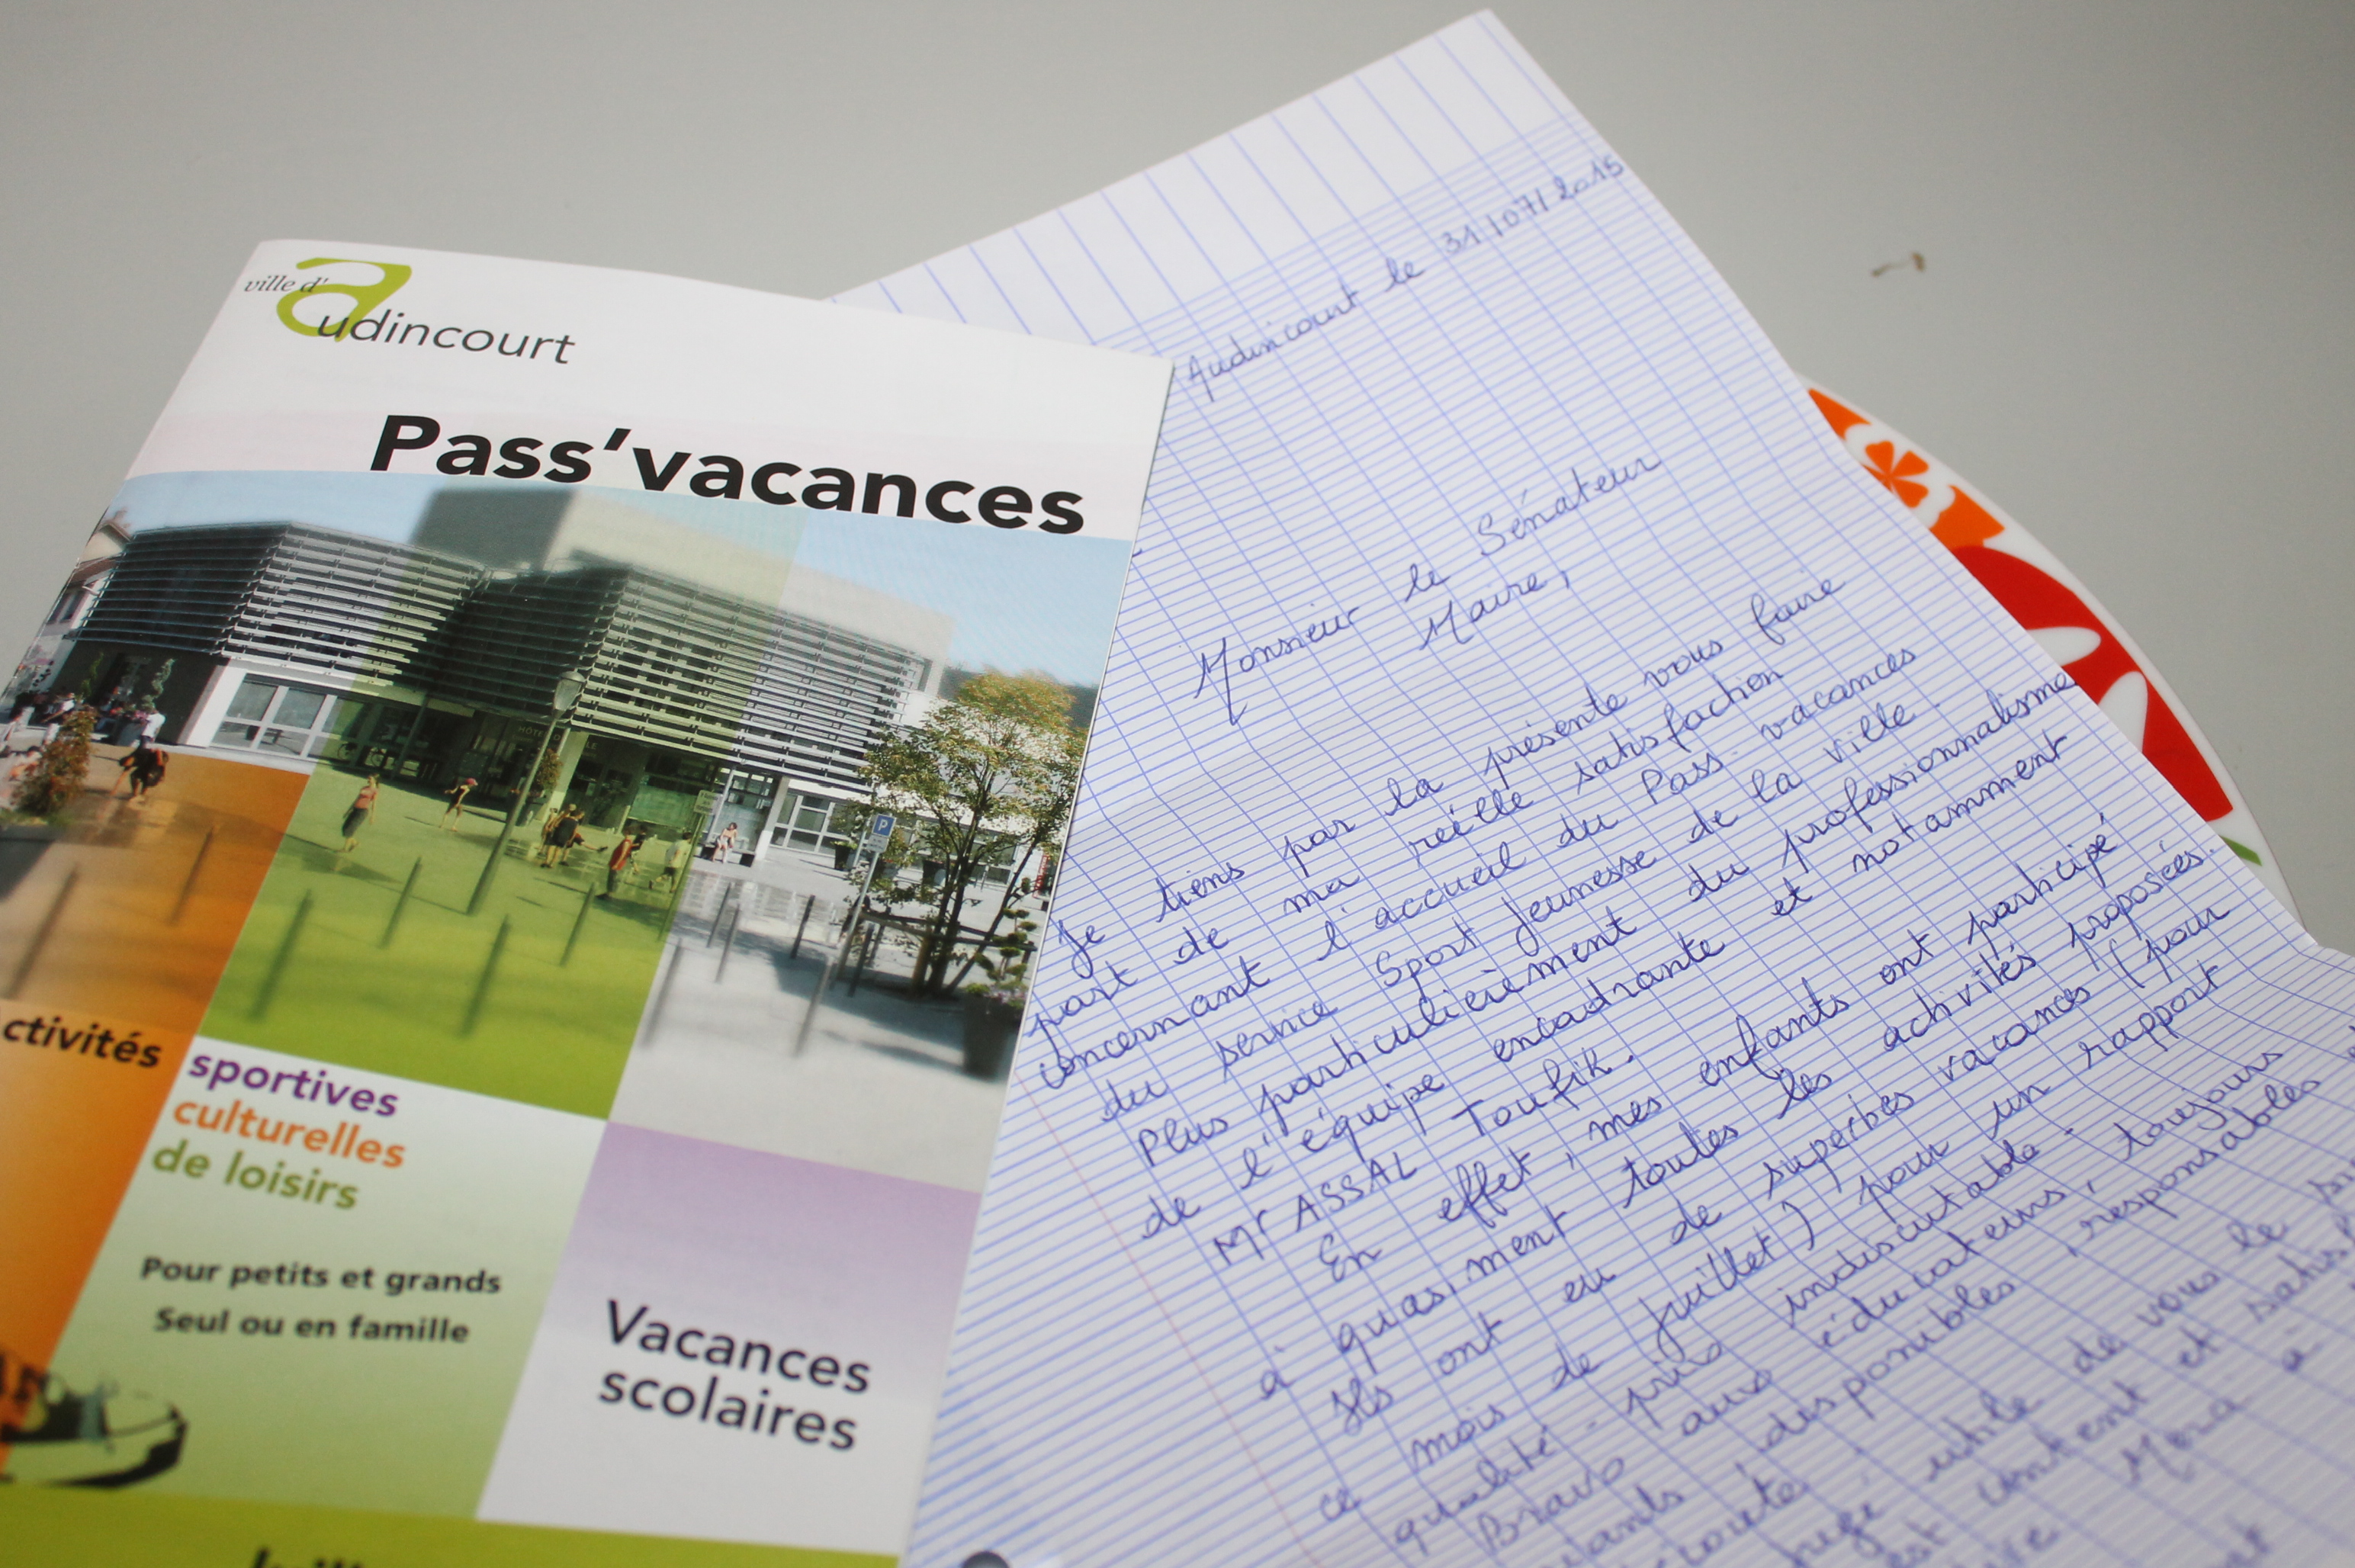 ville d'
audincourt
Pass'vacances
HÔTEL
P
ctivités
sportives
culturelles
de loisirs
Pour petits et grands
Seul ou en famille
Vacances
scolaires
Audincourt le 31/07/2015
Monsieur le Sénateur
Maire,
Je tiens par la présente vous faire
part de ma réélle satisfaction
concernant l'accueil du Pass-vacances
du service Sport Jeunesse de la ville.
Plus particulièrement du professionnalisme
de l'équipe encadrante et notamment
Mr ASSAL Toufik.
En effet, mes enfants ont participé
à quasiment toutes les activités proposées.
Ils ont eu de superbes vacances (pour
ce mois de juillet) pour un rapport
qualité-prix indiscutable.
Bravo aux éducateurs, toujours
disponibles, responsables
utile de vous le
content et satis
Mera à
et